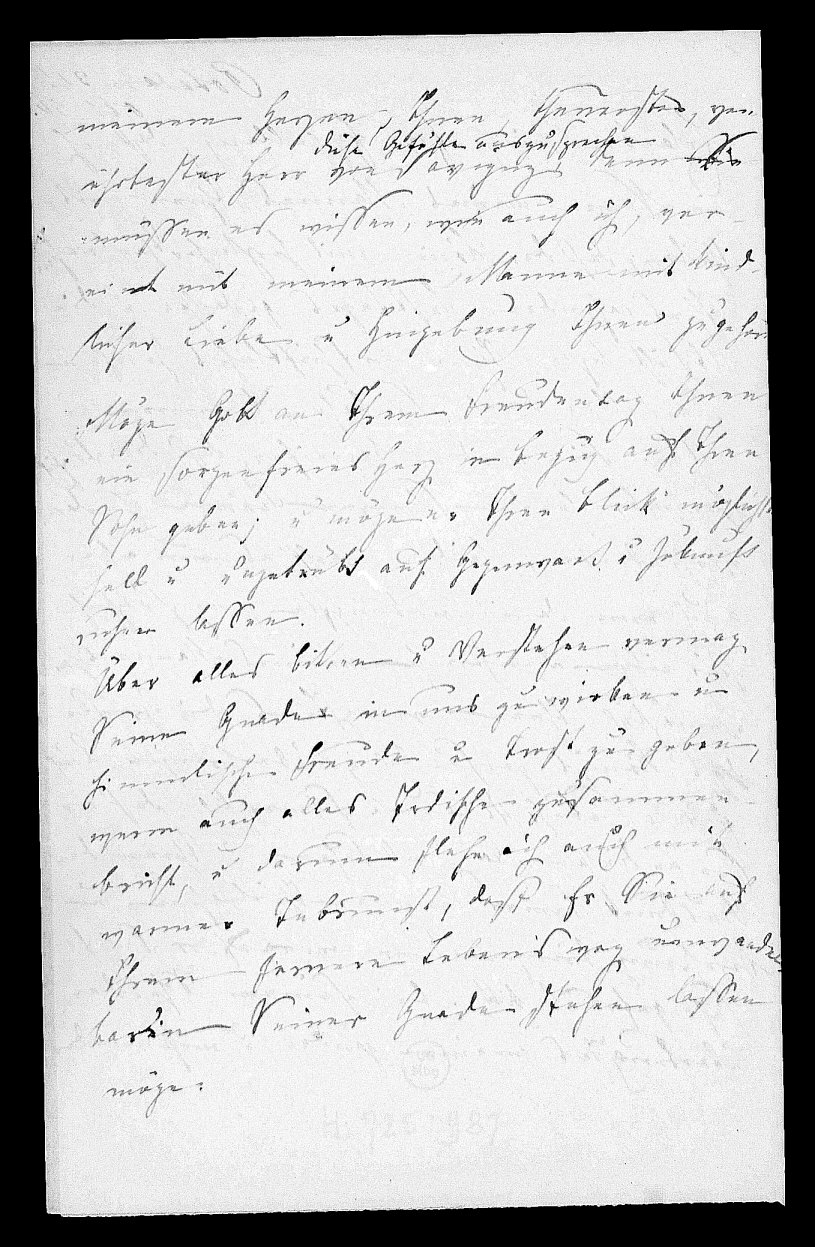 meinem Herzen, Ihnen, theuerster, ver-
diese Gefühle auszusprechen
ehrtester Herr von Savigny; denn Sie
müssen es wissen, wie auch ich, ver
eint mit meinem Manne mit kind-
licher Liebe u Hingebung Ihnen zugehöre.
Möge Gott an Ihrem Freudentag Ihnen
ein sorgenfreies Herz in bezug auf Ihren
Sohn geben; u möge er Ihren Blick möglichst
hell u ungetrübt auf Gegenwart u Zukunft
ruhen lassen.
Über alles bitten u Verstehen vermag
Seine Gnade in uns zu wirken u
himmlische Freude u Trost zu geben,
wenn auch alles Irdische zusammen
bricht, u darum flehe ich auch mit
warmer Inbrunst, daß Er Sie auf
Ihrem ferneren Lebensweg unwandel
bar in Seiner Gnade stehen lassen
möge.